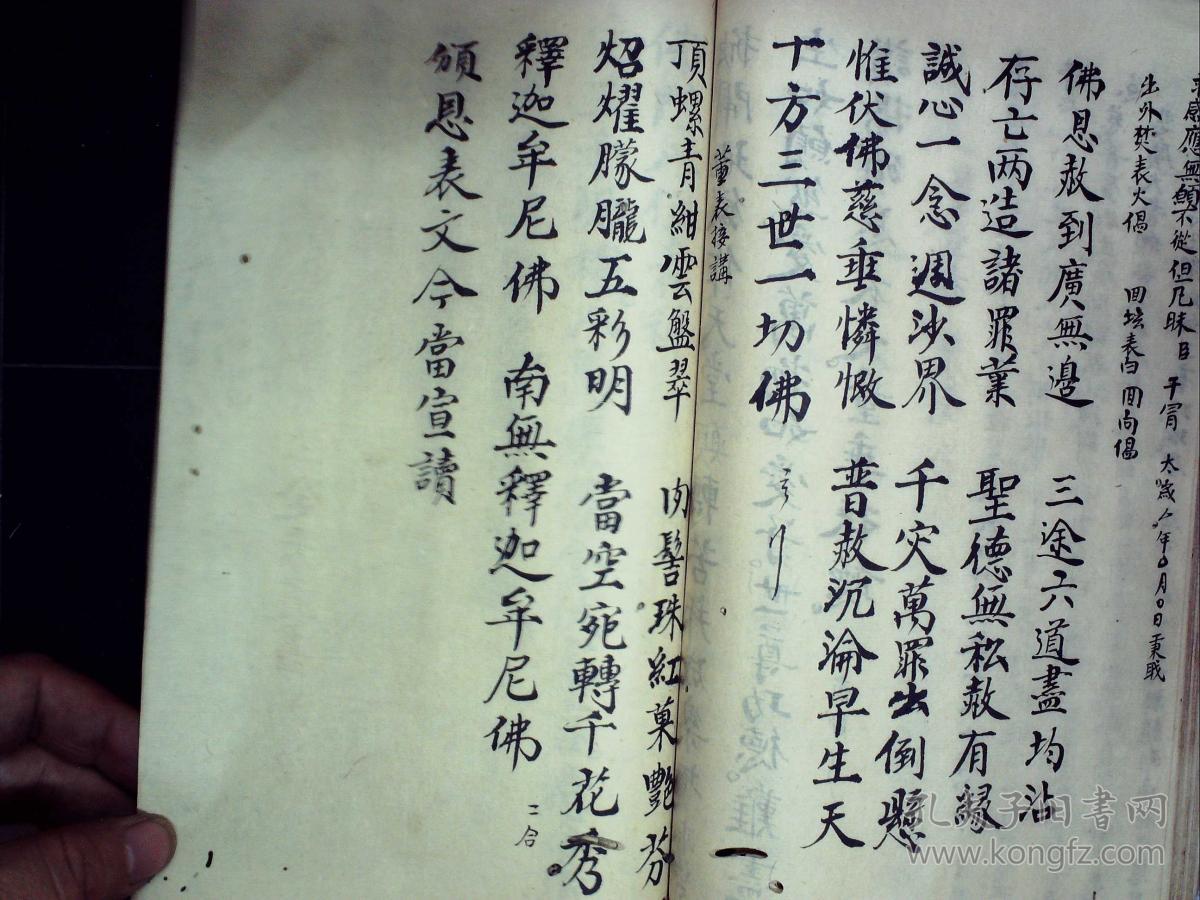 感應無願不從但凡昧臣 干冐 太歲 年 月 日 秉職
出外焚表火偈 回坛表白 回向偈
佛恩赦到廣無邊 三途六道盡均沾
存亡两造諸罪業 聖德無私赦有緣
誠心一念週沙界 千灾萬罪出倒懸
惟伏佛慈垂憐憫 普赦沉淪早生天
十方三世一切佛
薰表接講
頂螺青紺雲盤翠 肉髻珠紅菓艷芬
炤耀朦朧五彩明 當空宛轉千花秀
釋迦牟尼佛 南無釋迦牟尼佛 二合
頒恩表文今當宣讀
孔夫子旧書网
www.kongfz.com